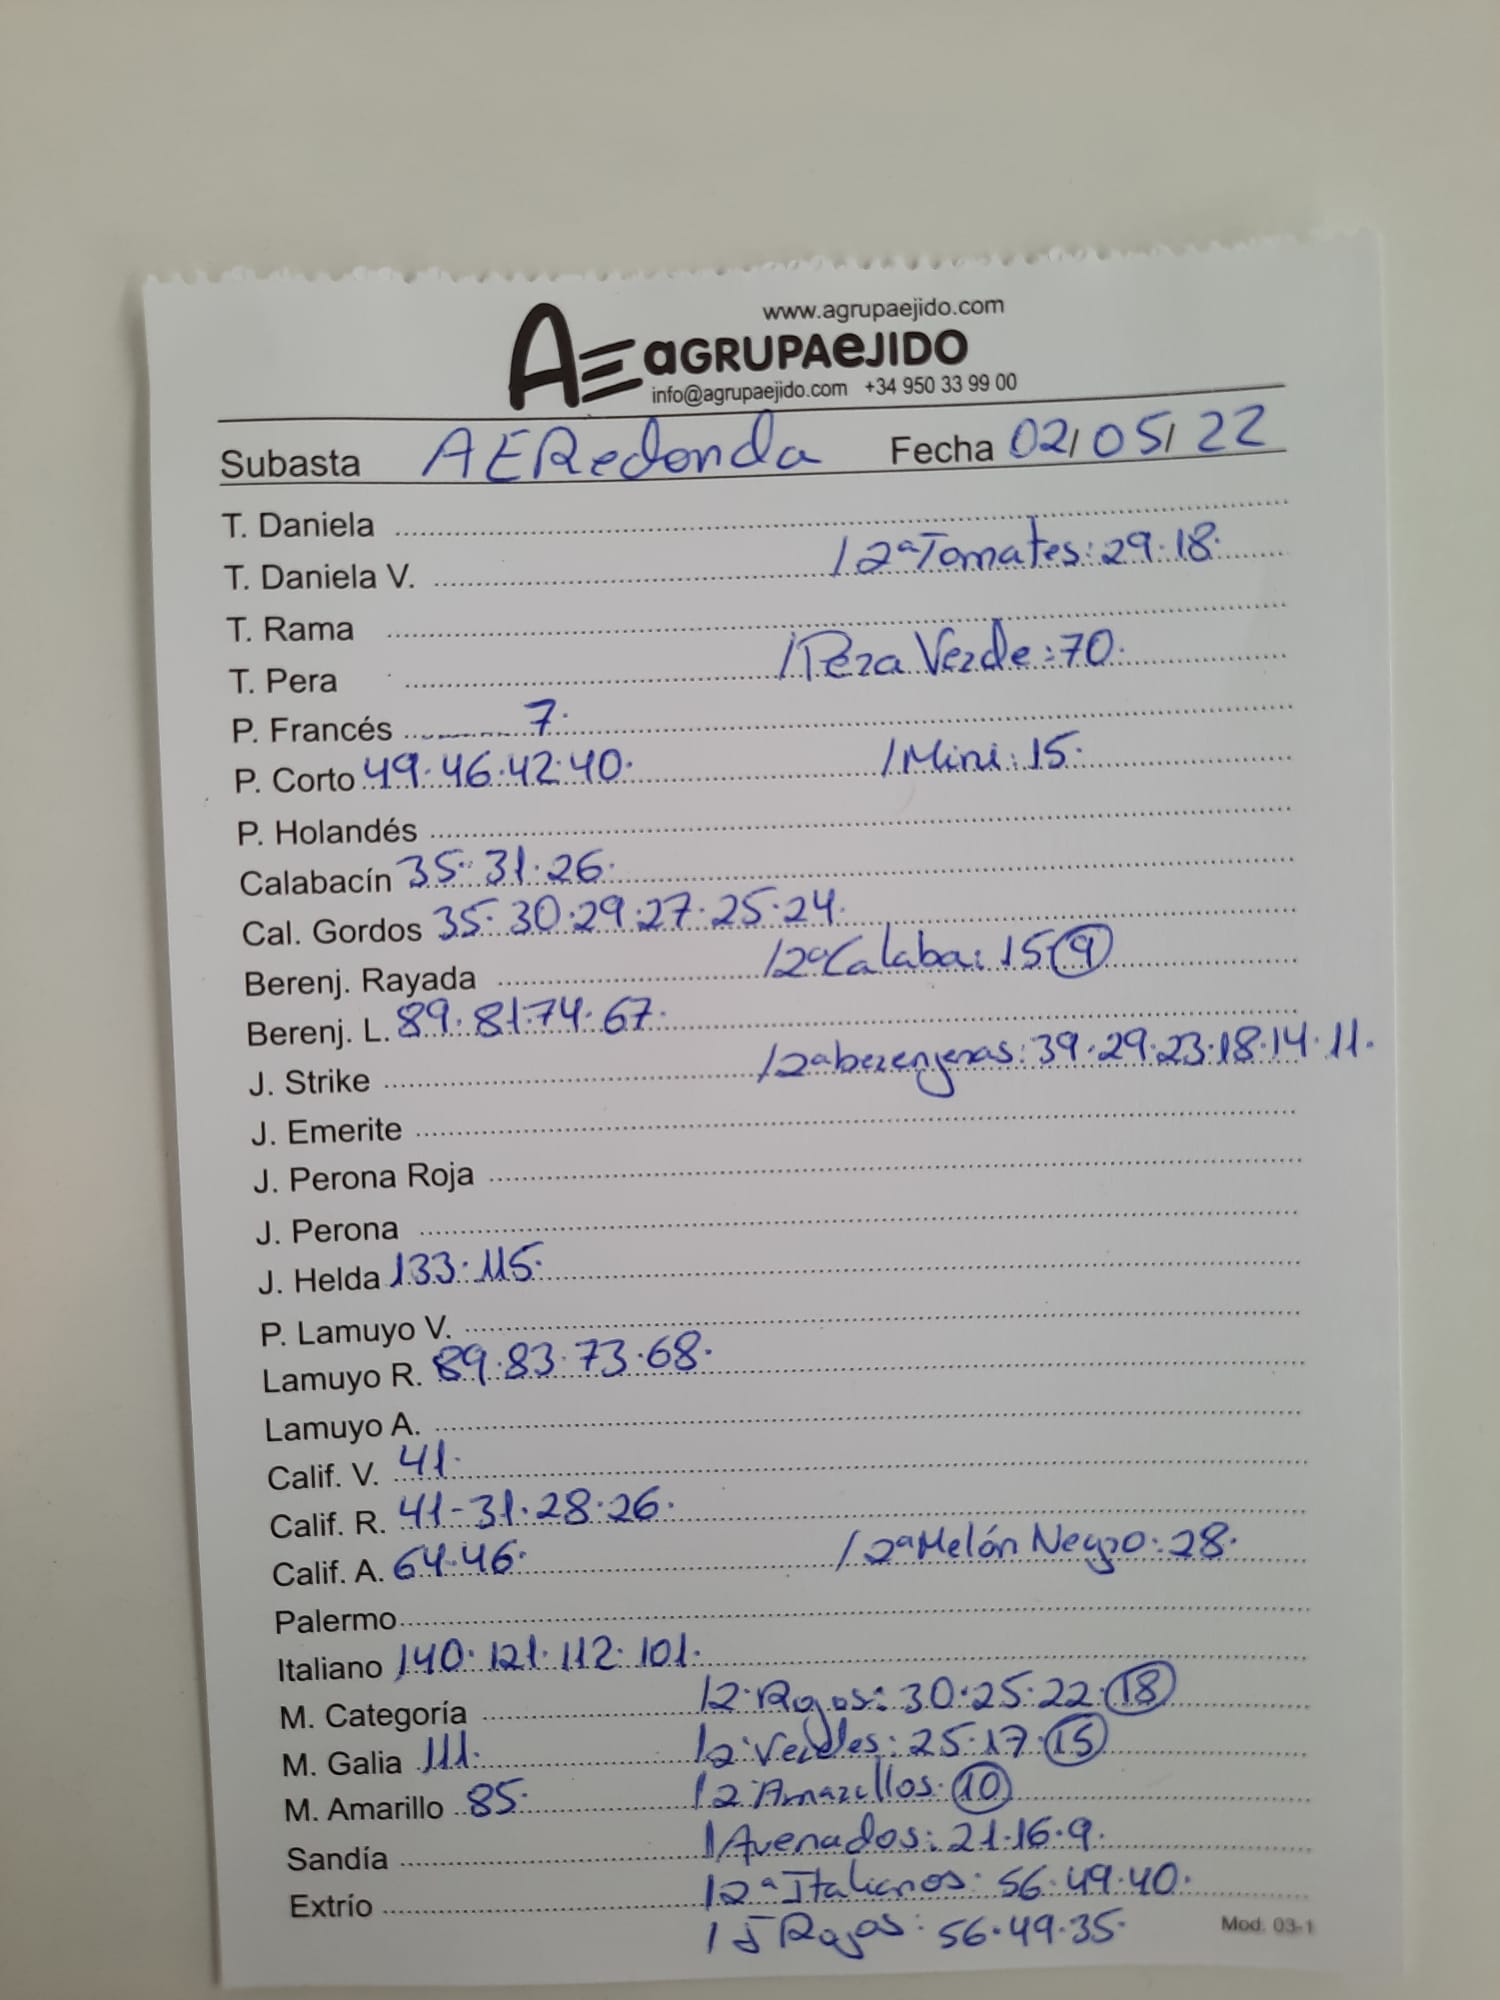 www.agrupaejido.com
AE aGRUPAeJIDO
info@agrupaejido.com +34 950 33 99 00
Subasta AERedonda Fecha 02/05/22
T. Daniela
T. Daniela V. /2ªTomates: 29.18.
T. Rama
T. Pera /Pera Verde: 70.
P. Francés 7.
P. Corto 49.46.42.40. /Mini: 15.
P. Holandés
Calabacín 35.31.26.
Cal. Gordos 35.30.29.27.25.24.
Berenj. Rayada /2ªCalaba: 15 9
Berenj. L. 89.81.74.67.
J. Strike /2ªberenjenas: 39.29.23.18.14.11.
J. Emerite
J. Perona Roja
J. Perona
J. Helda 133.115.
P. Lamuyo V.
Lamuyo R. 89.83.73.68.
Lamuyo A.
Calif. V. 41.
Calif. R. 41-31.28.26.
Calif. A. 64.46. /2ªMelón Negro: 28.
Palermo
Italiano 140.121.112.101.
M. Categoría /2.Rojos: 30.25.22.18
M. Galia 111. /2.Verdes: 25.17.15
M. Amarillo 85. /2.Amarillos. 10
Sandía /Avenados: 21.16.9.
Extrío /2ªItalianos: 56.49.40.
Rojos: 56.49.35.
Mod. 03-1